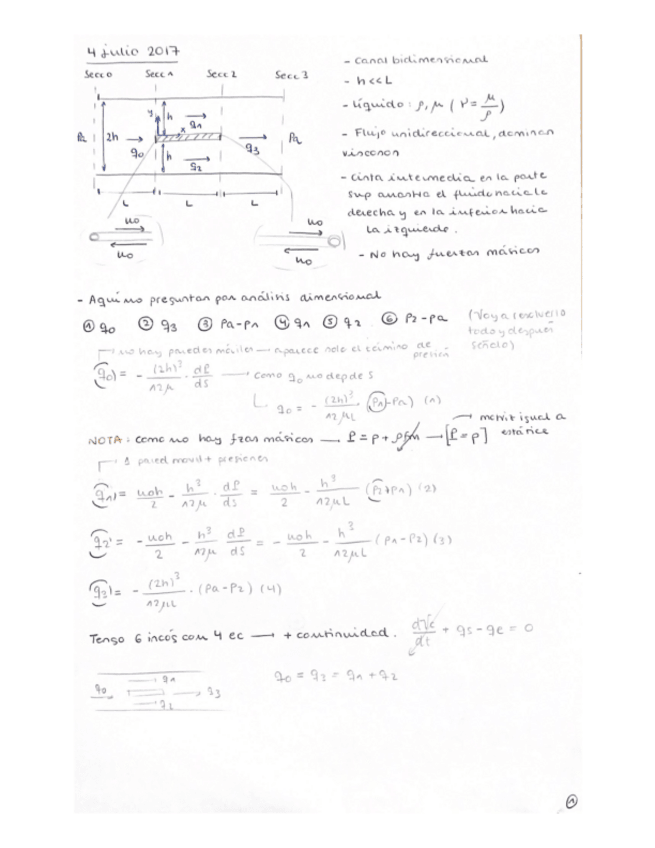 4 julio 2017
Secc 0 Secc 1 Secc 2 Secc 3
- Canal bidimensional
- h << L
- Líquido: ρ, μ (ν = μ/ρ)
- Flujo unidireccional, dominan
viscosos
- Cinta intermedia en la parte
sup arrastra el fluido hacia la
derecha y en la inferior hacia
la izquierda.
- No hay fuerzas másicas
Pa 2h q0 y h x q1 h q2 q3 Pa
L L L
u0 u0
u0 u0
- Aquí no preguntan por análisis dimensional
① q0 ② q3 ③ Pa-P1 ④ q1 ⑤ q2 ⑥ P2-Pa (Voy a resolverlo
todo y después
señalo)
no hay paredes móviles → aparece solo el término de
presión
q0) = - (2h)³/12μ · dP/dS → como q0 no dep de S
q0 = - (2h)³/12μL · (P1-Pa) (1)
NOTA: como no hay fzas másicas → P = p + ρfm → [P = p] → motriz igual a
estática
1 pared movil + presiones
q1) = u0h/2 - h³/12μ · dP/dS = u0h/2 - h³/12μL (P2+P1) (2)
q2 = - u0h/2 - h³/12μ dP/dS = - u0h/2 - h³/12μL (P1-P2) (3)
q3) = - (2h)³/12μL · (Pa-P2) (4)
Tengo 6 incós con 4 ec → + continuidad. dVc/dt + qs - qe = 0
q0 q1 q2 q3
q0 = q3 = q1 + q2
①